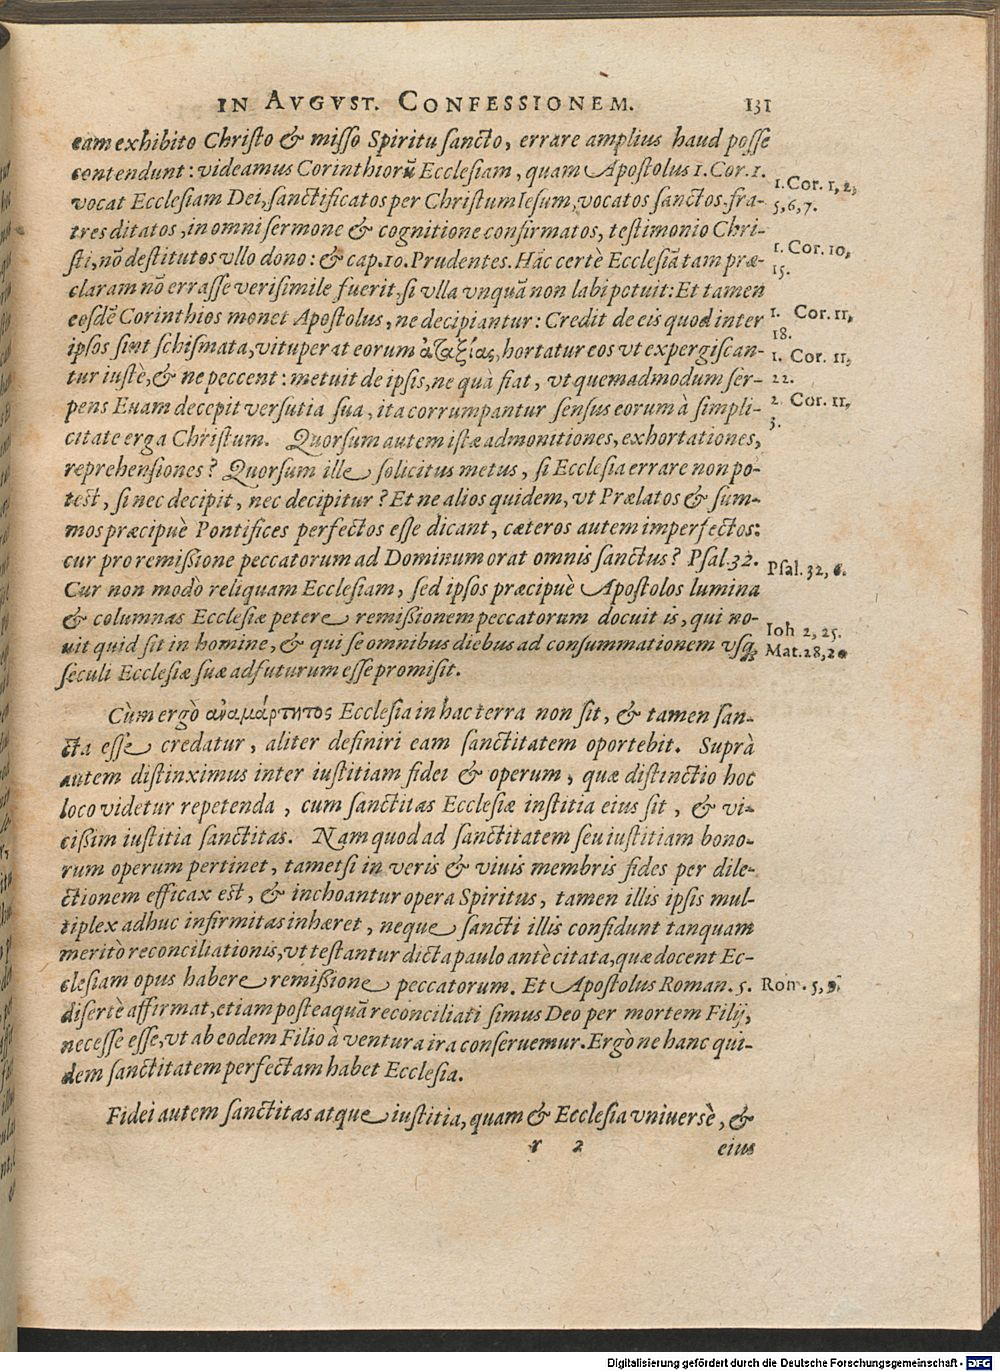 IN AVGVST. CONFESSIONEM. 131
eam exhibito Christo & misso Spiritu sancto, errare amplius haud posse
contendunt: videamus Corinthiorũ Ecclesiam, quam Apostolus 1. Cor. 1.
1. Cor. 1, 2,
vocat Ecclesiam Dei, sanctificatos per Christum Iesum, vocatos sanctos, fra-
5, 6, 7.
tres ditatos, in omni sermone & cognitione confirmatos, testimonio Chri-
1. Cor. 10,
sti, nõ destitutos vllo dono: & cap. 10. Prudentes. Hãc certè Ecclesiã tam præ-
15.
claram nõ errasse verisimile fuerit, si vlla vnquã non labi potuit: Et tamen
1. Cor. 11,
eosdẽ Corinthios monet Apostolus, ne decipiantur: Credit de eis quod inter
18.
ipsos sint schismata, vituperat eorum ἀταξίας, hortatur eos vt expergiscan-
1. Cor. 11,
tur iustè, & ne peccent: metuit de ipsis, ne quà fiat, vt quemadmodum ser-
22.
pens Euam decepit versutia sua, ita corrumpantur sensus eorum à simpli-
2. Cor. 11,
3.
citate erga Christum. Quorsum autem istæ admonitiones, exhortationes,
reprehensiones? Quorsum ille solicitus metus, si Ecclesia errare non po-
test, si nec decipit, nec decipitur? Et ne alios quidem, vt Prælatos & sum-
mos præcipuè Pontifices perfectos esse dicant, cæteros autem imperfectos:
cur pro remißione peccatorum ad Dominum orat omnis sanctus? Psal. 32.
Psal. 32, 6.
Cur non modò reliquam Ecclesiam, sed ipsos præcipuè Apostolos lumina
& columnas Ecclesiæ petere remißionem peccatorum docuit is, qui no-
Ioh 2, 25.
uit quid sit in homine, & qui se omnibus diebus ad consummationem vsq;
Mat. 28, 20
seculi Ecclesiæ suæ adfuturum esse promisit.
Cùm ergò ἀναμάρτητος Ecclesia in hac terra non sit, & tamen san-
cta esse credatur, aliter definiri eam sanctitatem oportebit. Suprà
autem distinximus inter iustitiam fidei & operum, quæ distinctio hoc
loco videtur repetenda, cum sanctitas Ecclesiæ iustitia eius sit, & vi-
cißim iustitia sanctitas. Nam quod ad sanctitatem seu iustitiam bono-
rum operum pertinet, tametsi in veris & viuis membris fides per dile-
ctionem efficax est, & inchoantur opera Spiritus, tamen illis ipsis mul-
tiplex adhuc infirmitas inhæret, neque sancti illis confidunt tanquam
meritò reconciliationis, vt testantur dicta paulo antè citata, quæ docent Ec-
clesiam opus habere remißione peccatorum. Et Apostolus Roman. 5.
Rom. 5, 9.
disertè affirmat, etiam posteaquã reconciliati simus Deo per mortem Filij,
necesse esse, vt ab eodem Filio à ventura ira conseruemur. Ergò ne hanc qui-
dem sanctitatem perfectam habet Ecclesia.
Fidei autem sanctitas atque iustitia, quam & Ecclesia vniuersè, &
r 2 eius
Digitalisierung gefördert durch die Deutsche Forschungsgemeinschaft - DFG